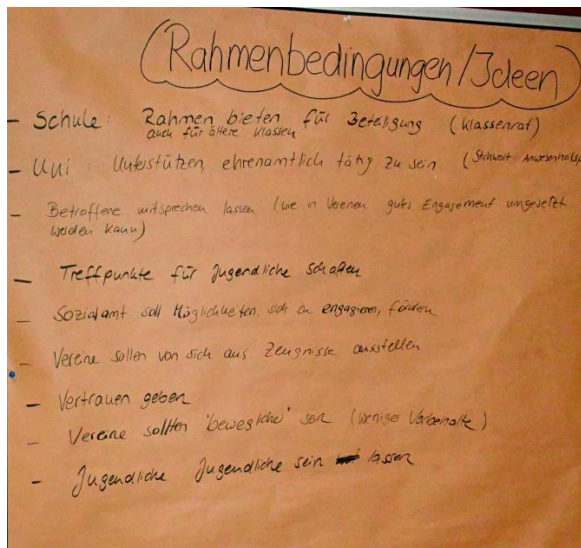 (Rahmenbedingungen/Ideen)
- Schule: Rahmen bieten für Beteiligung (Klassenrat)
auch für ältere Klassen
- Uni: Unterstützen, ehrenamtlich tätig zu sein (Stichwort
- Betroffene mitsprechen lassen (wie in Vereinen gutes Engagement umgesetzt
werden kann)
- Treffpunkte für Jugendliche schaffen
- Sozialamt soll Möglichkeiten, sich zu engagieren, fördern
- Vereine sollen von sich aus Zeugnisse ausstellen
- Vertrauen geben
- Vereine sollten "beweglicher" sein (weniger Vorbehalte)
- Jugendliche Jugendliche sein lassen